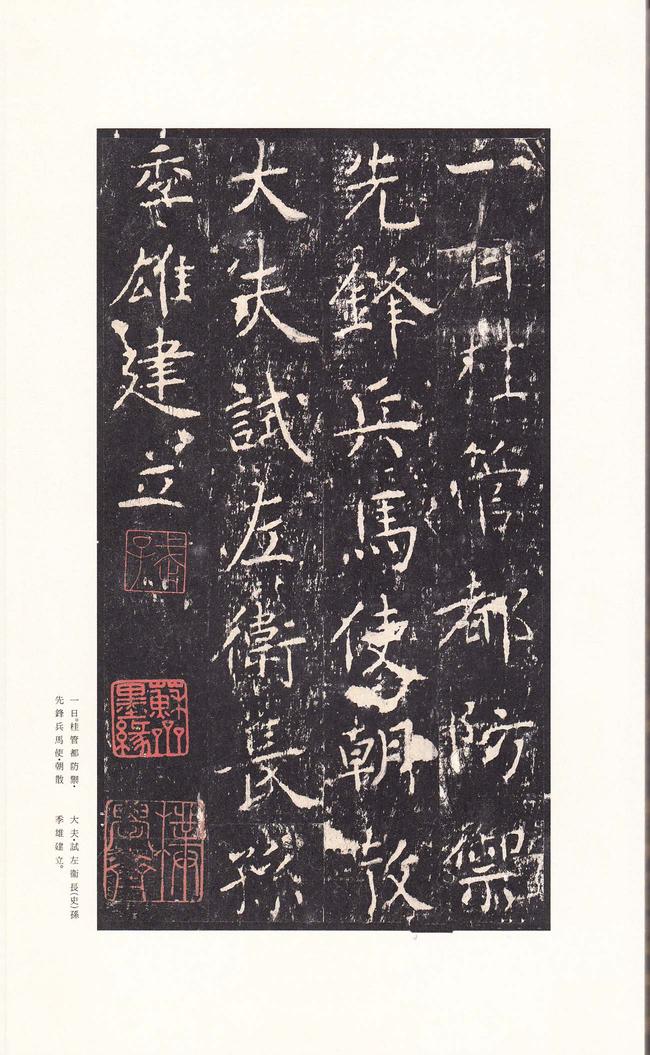 一日桂管都防禦
先鋒兵馬使朝散
大夫試左衛長孫
季雄建立
蘇齋墨緣
一日。桂管都防禦・
先鋒兵馬使・朝散
大夫・試左衞長(史)孫
季雄建立。